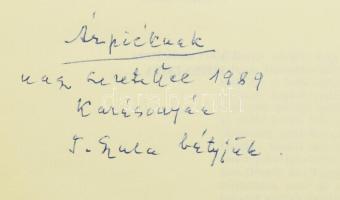 Árpiéknak
nagy szeretettel 1989
Karácsonyán
T. Gyula bátyjuk.